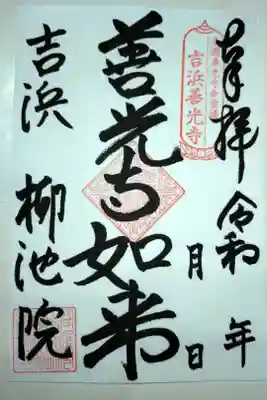 奉拝
令和 年
月 日
吉浜善光寺
善光寺如来
吉浜 柳池院